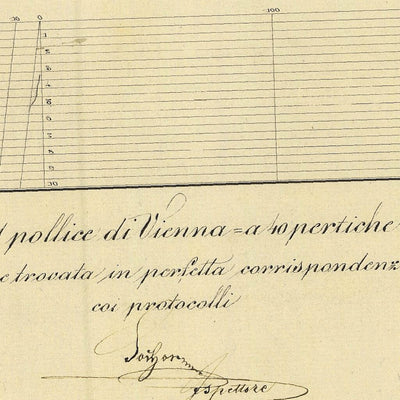 10 0 100
1
2
3
4
5
6
7
8
9
10
1 pollice di Vienna = a 40 pertiche
e trovata in perfetta corrispondenz
coi protocolli
Ispettore